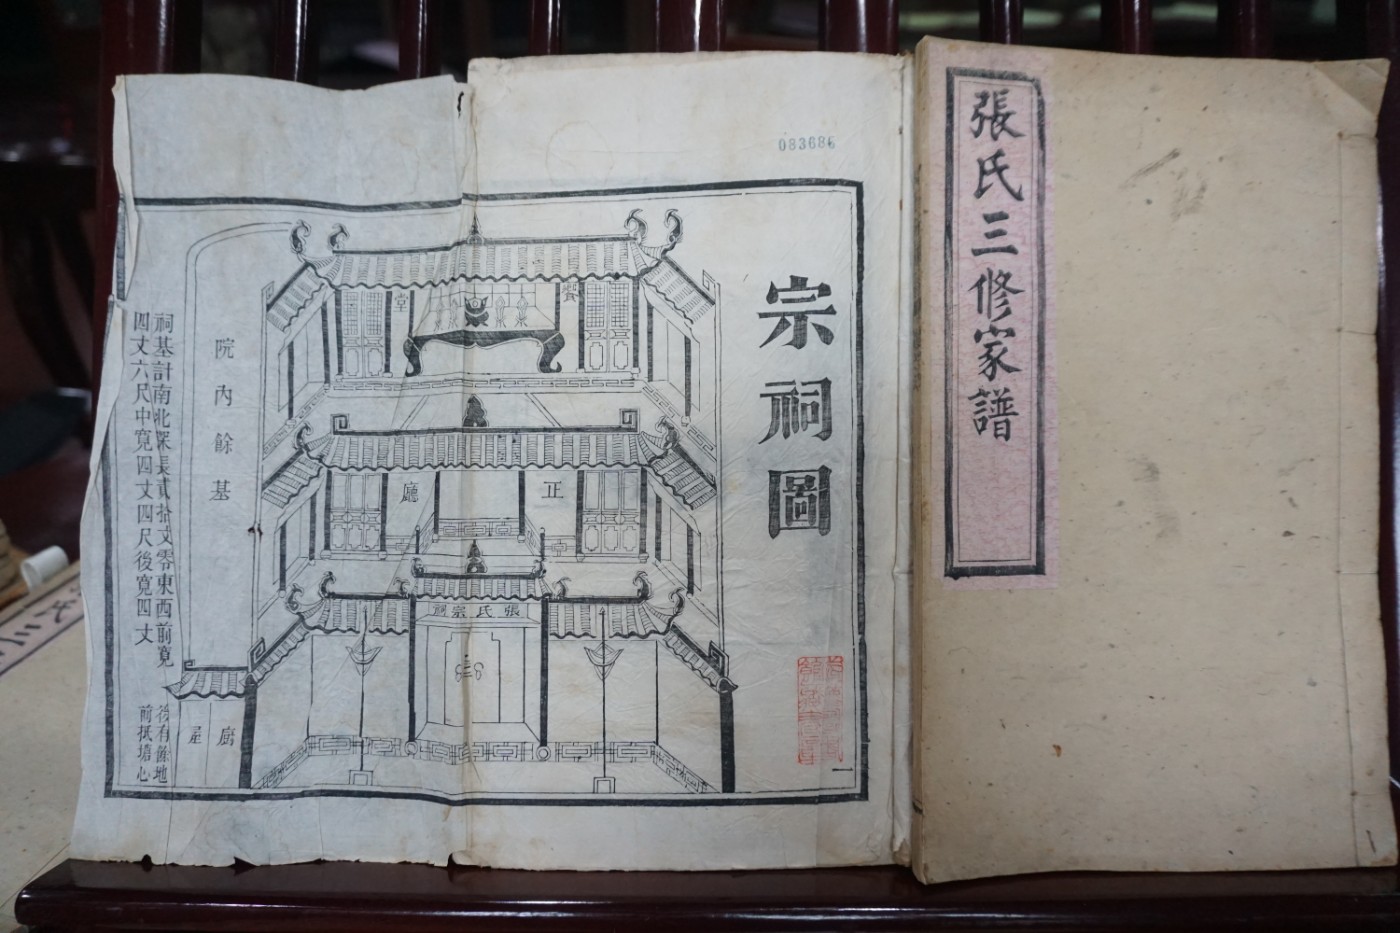 張氏三修家譜
083686
宗祠圖
饗堂
正廳
張氏宗祠
院內餘基
廚屋
祠基計南北深長貳拾丈零東西前寬
四丈六尺中寬四丈四尺後寬四丈
後有餘地
前抵塘心
一